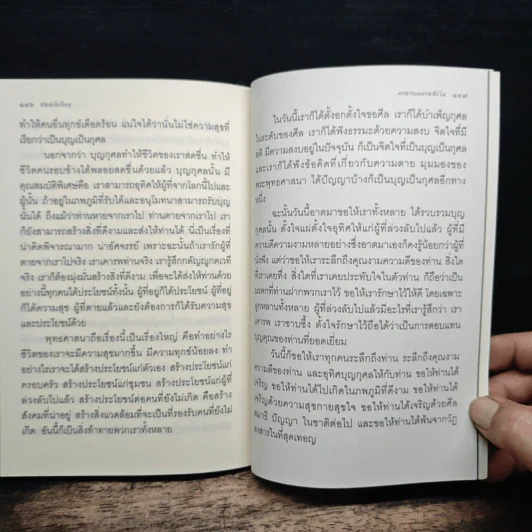 ๑๔๖
ทำให้คนอื่นทุกข์เดือดร้อน แน่ใจได้ว่านั่นไม่ใช่ความสุขที่
เรียกว่าเป็นบุญเป็นกุศล
นอกจากว่า บุญกุศลทำให้ชีวิตของเราสดชื่น ทำให้
ชีวิตคนรอบข้างได้พลอยสดชื่นด้วยแล้ว บุญกุศลนั้น มี
คุณสมบัติพิเศษคือ เราสามารถอุทิศให้ผู้ที่จากโลกนี้ไปและ
ผู้นั้น ถ้าอยู่ในภพภูมิที่รับได้และอนุโมทนาสามารถรับบุญ
นั้นได้ ถึงแม้ว่าท่านหายจากเราไป ท่านตายจากเราไป เรา
ก็ยังสามารถสร้างสิ่งที่ดีงามและส่งให้ท่านได้ นี่เป็นเรื่องที่
น่าคิดพิจารณามาก น่าอัศจรรย์ เพราะฉะนั้นถ้าเรารักผู้ที่
ตายจากเราไปจริง เราเคารพท่านจริง เรารู้สึกกตัญญูกตเวที
จริง เราก็ต้องมุ่งมั่นสร้างสิ่งที่ดีงาม เพื่อจะได้ส่งให้ท่านด้วย
อย่างนี้ทุกคนได้ประโยชน์ทั้งนั้น ผู้ที่อยู่ก็ได้ประโยชน์ ผู้ที่อยู่
ก็ได้ความสุข ผู้ที่ตายแล้วและยังต้องการก็ได้รับความสุข
และประโยชน์ด้วย
พุทธศาสนาถือเรื่องนี้เป็นเรื่องใหญ่ คือทำอย่างไร
ชีวิตของเราจะมีความสุขมากขึ้น มีความทุกข์น้อยลง ทำ
อย่างไรเราจะได้สร้างประโยชน์แก่ตัวเอง สร้างประโยชน์แก่
ครอบครัว สร้างประโยชน์แก่ชุมชน สร้างประโยชน์แก่ผู้ที่
ล่วงลับไปแล้ว สร้างประโยชน์ต่อคนที่ยังไม่เกิด คือสร้าง
สังคมที่น่าอยู่ สร้างสิ่งแวดล้อมที่จะเป็นที่รองรับคนที่ยังไม่
เกิด อันนี้ก็เป็นสิ่งท้าทายพวกเราทั้งหลาย
๑๔๗
ในวันนี้เราก็ได้ตั้งอกตั้งใจขอศีล เราก็ได้บำเพ็ญกุศล
ในระดับของศีล เราก็ได้ฟังธรรมะด้วยความสงบ จิตใจที่มี
สติ มีความสงบอยู่ในปัจจุบัน ก็เป็นจิตใจที่เป็นบุญเป็นกุศล
และเราก็ได้ฟังข้อคิดที่เกี่ยวกับความตาย มุมมองของ
พระพุทธศาสนา ได้ปัญญาบ้างก็เป็นบุญเป็นกุศลอีกทาง
หนึ่ง
ฉะนั้นวันนี้อาตมาขอให้เราทั้งหลาย ได้รวบรวมบุญ
กุศลนั้น ตั้งใจแผ่ตั้งใจอุทิศให้แก่ผู้ที่ล่วงลับไปแล้ว ผู้ที่มี
ความดีความงามหลายอย่างซึ่งอาตมาเองก็คงรู้น้อยกว่าผู้ที่
นั่งฟัง แต่ว่าขอให้เราระลึกถึงคุณงามความดีของท่าน สิ่งใด
ที่เราเคยทึ่ง สิ่งใดที่เราเคยประทับใจในตัวท่าน ก็ถือว่าเป็น
มรดกที่ท่านฝากพวกเราไว้ ขอให้เรารักษาไว้ให้ดี โดยเฉพาะ
ลูกหลานทั้งหลาย ผู้ที่ล่วงลับไปแล้วมีอะไรที่เรารู้สึกว่า เรา
เคารพ เราซาบซึ้ง ตั้งใจรักษาไว้ถือได้ว่าเป็นการตอบแทน
บุญคุณของท่านที่ยอดเยี่ยม
วันนี้ก็ขอให้เราทุกคนระลึกถึงท่าน ระลึกถึงคุณงาม
ความดีของท่าน และอุทิศบุญกุศลให้กับท่าน ขอให้ท่านได้
เจริญ ขอให้ท่านได้ไปเกิดในภพภูมิที่ดีงาม ขอให้ท่านได้
เจริญด้วยความสุขกายสุขใจ ขอให้ท่านได้เจริญด้วยศีล
สมาธิ ปัญญา ในชาติต่อไป และขอให้ท่านได้พ้นจากวัฏ
สงสารในที่สุดเทอญ